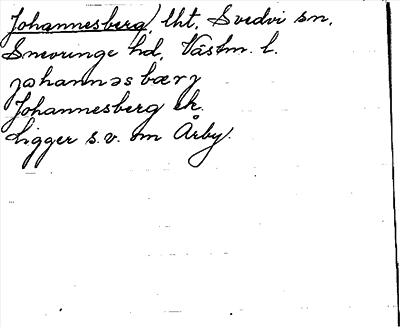 Johannesberg, lht, Svedvi sn,
Snevringe hd, Västm. l.
johannəsbærj
Johannesberg ek.
Ligger s.v. om Årby.